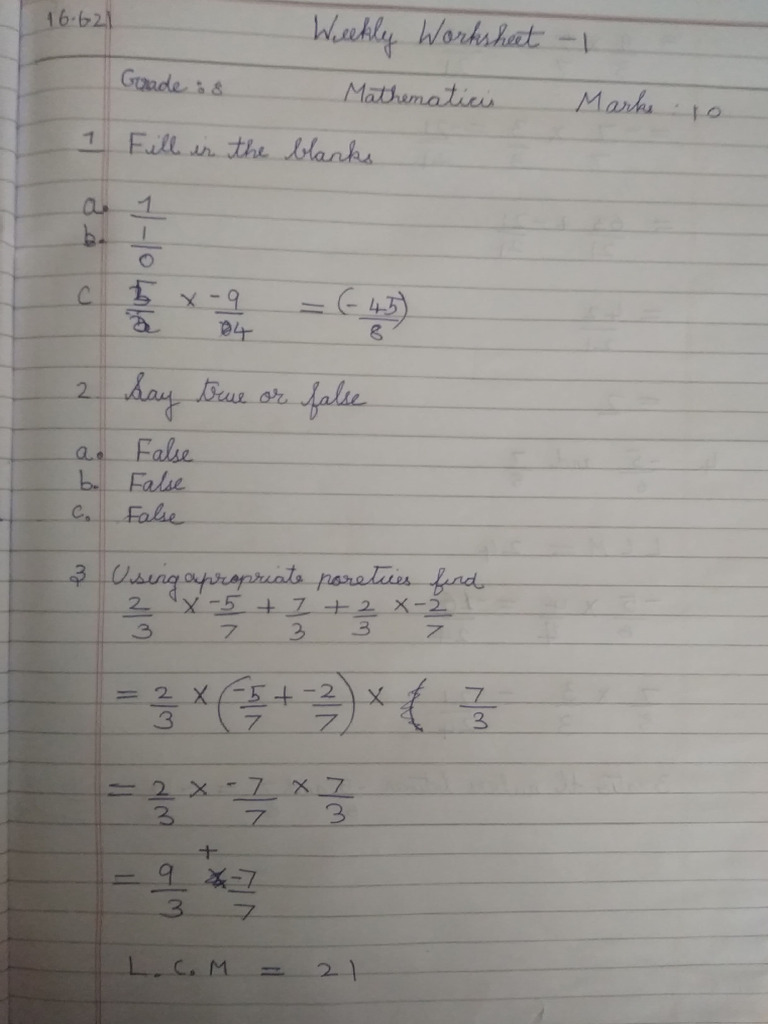 16.6.21
Weekly Worksheet - 1
Grade : 8 Mathematics Marks : 10
1 Fill in the blanks
a. 1
b. 1/0
c 5/2 × -9/4 = (-45/8)
2 Say true or false
a. False
b. False
c. False
3 Using apropriate poreties find
2/3 × -5/7 + 7/3 + 2/3 × -2/7
= 2/3 × (-5/7 + -2/7) × 7/3
= 2/3 × -7/7 × 7/3
= 9/3 + -7/7
L.C.M = 21